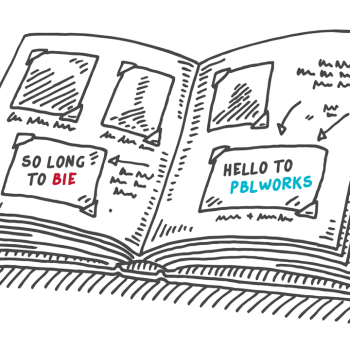 SO LONG
TO BIE
HELLO TO
PBLWORKS